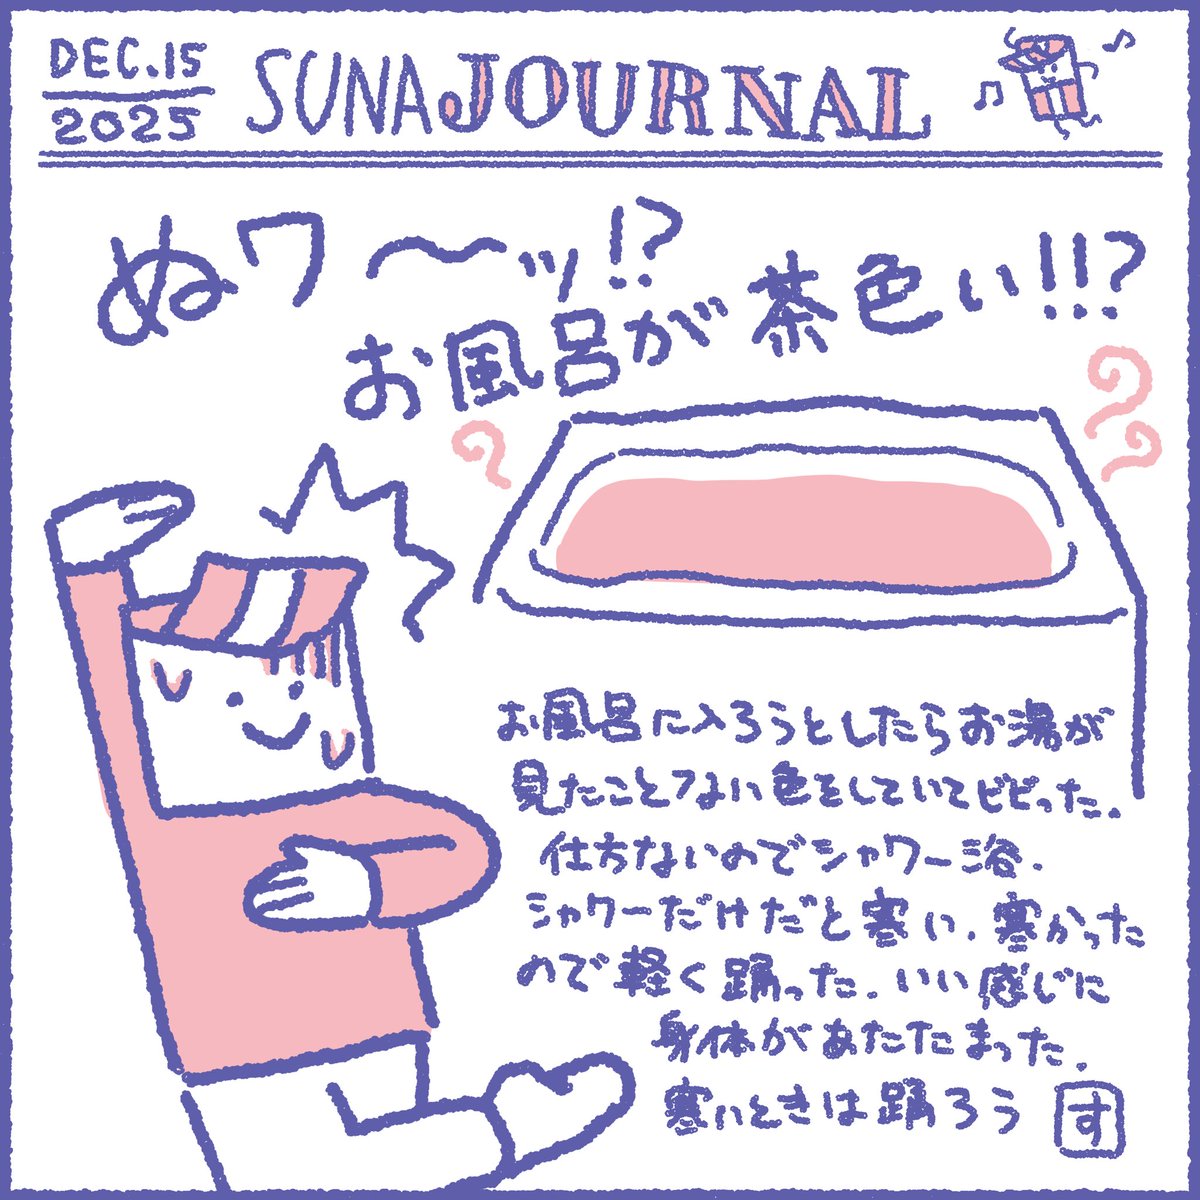 DEC.15
2025
SUNAJOURNAL
ぬワ〜ッ!?
お風呂が茶色い!!?
お風呂に入ろうとしたらお湯が
見たことない色をしていてビビった.
仕方ないのでシャワー浴.
シャワーだけだと寒い.寒かった
ので軽く踊った.いい感じに
身体があたたまった.
寒いときは踊ろう
す